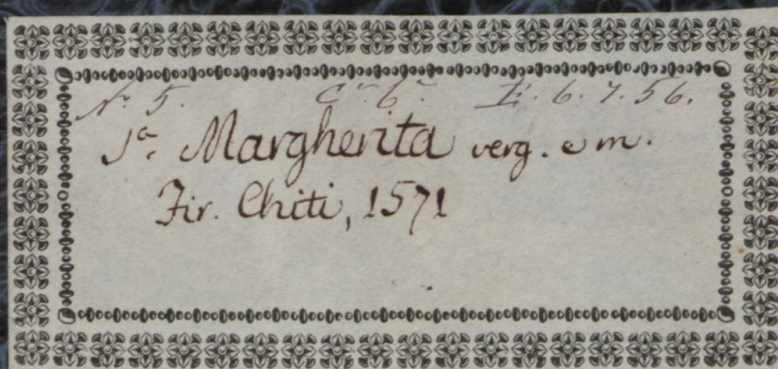 N.º 5. C.ª 6.ª E. 6. 7. 56.
S.ª Margherita verg. e m.
Fir. Chiti, 1571